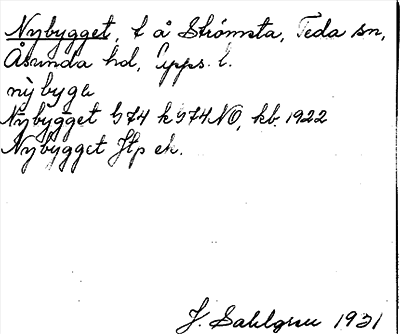 Nybygget, t å Strömsta, Teda sn,
Åsunda hd, Upps. l.
nỳbygǝ
Nybygget G74 k G74NO, kb. 1922
Nybygget Jtp ek.
J. Sahlgren 1931